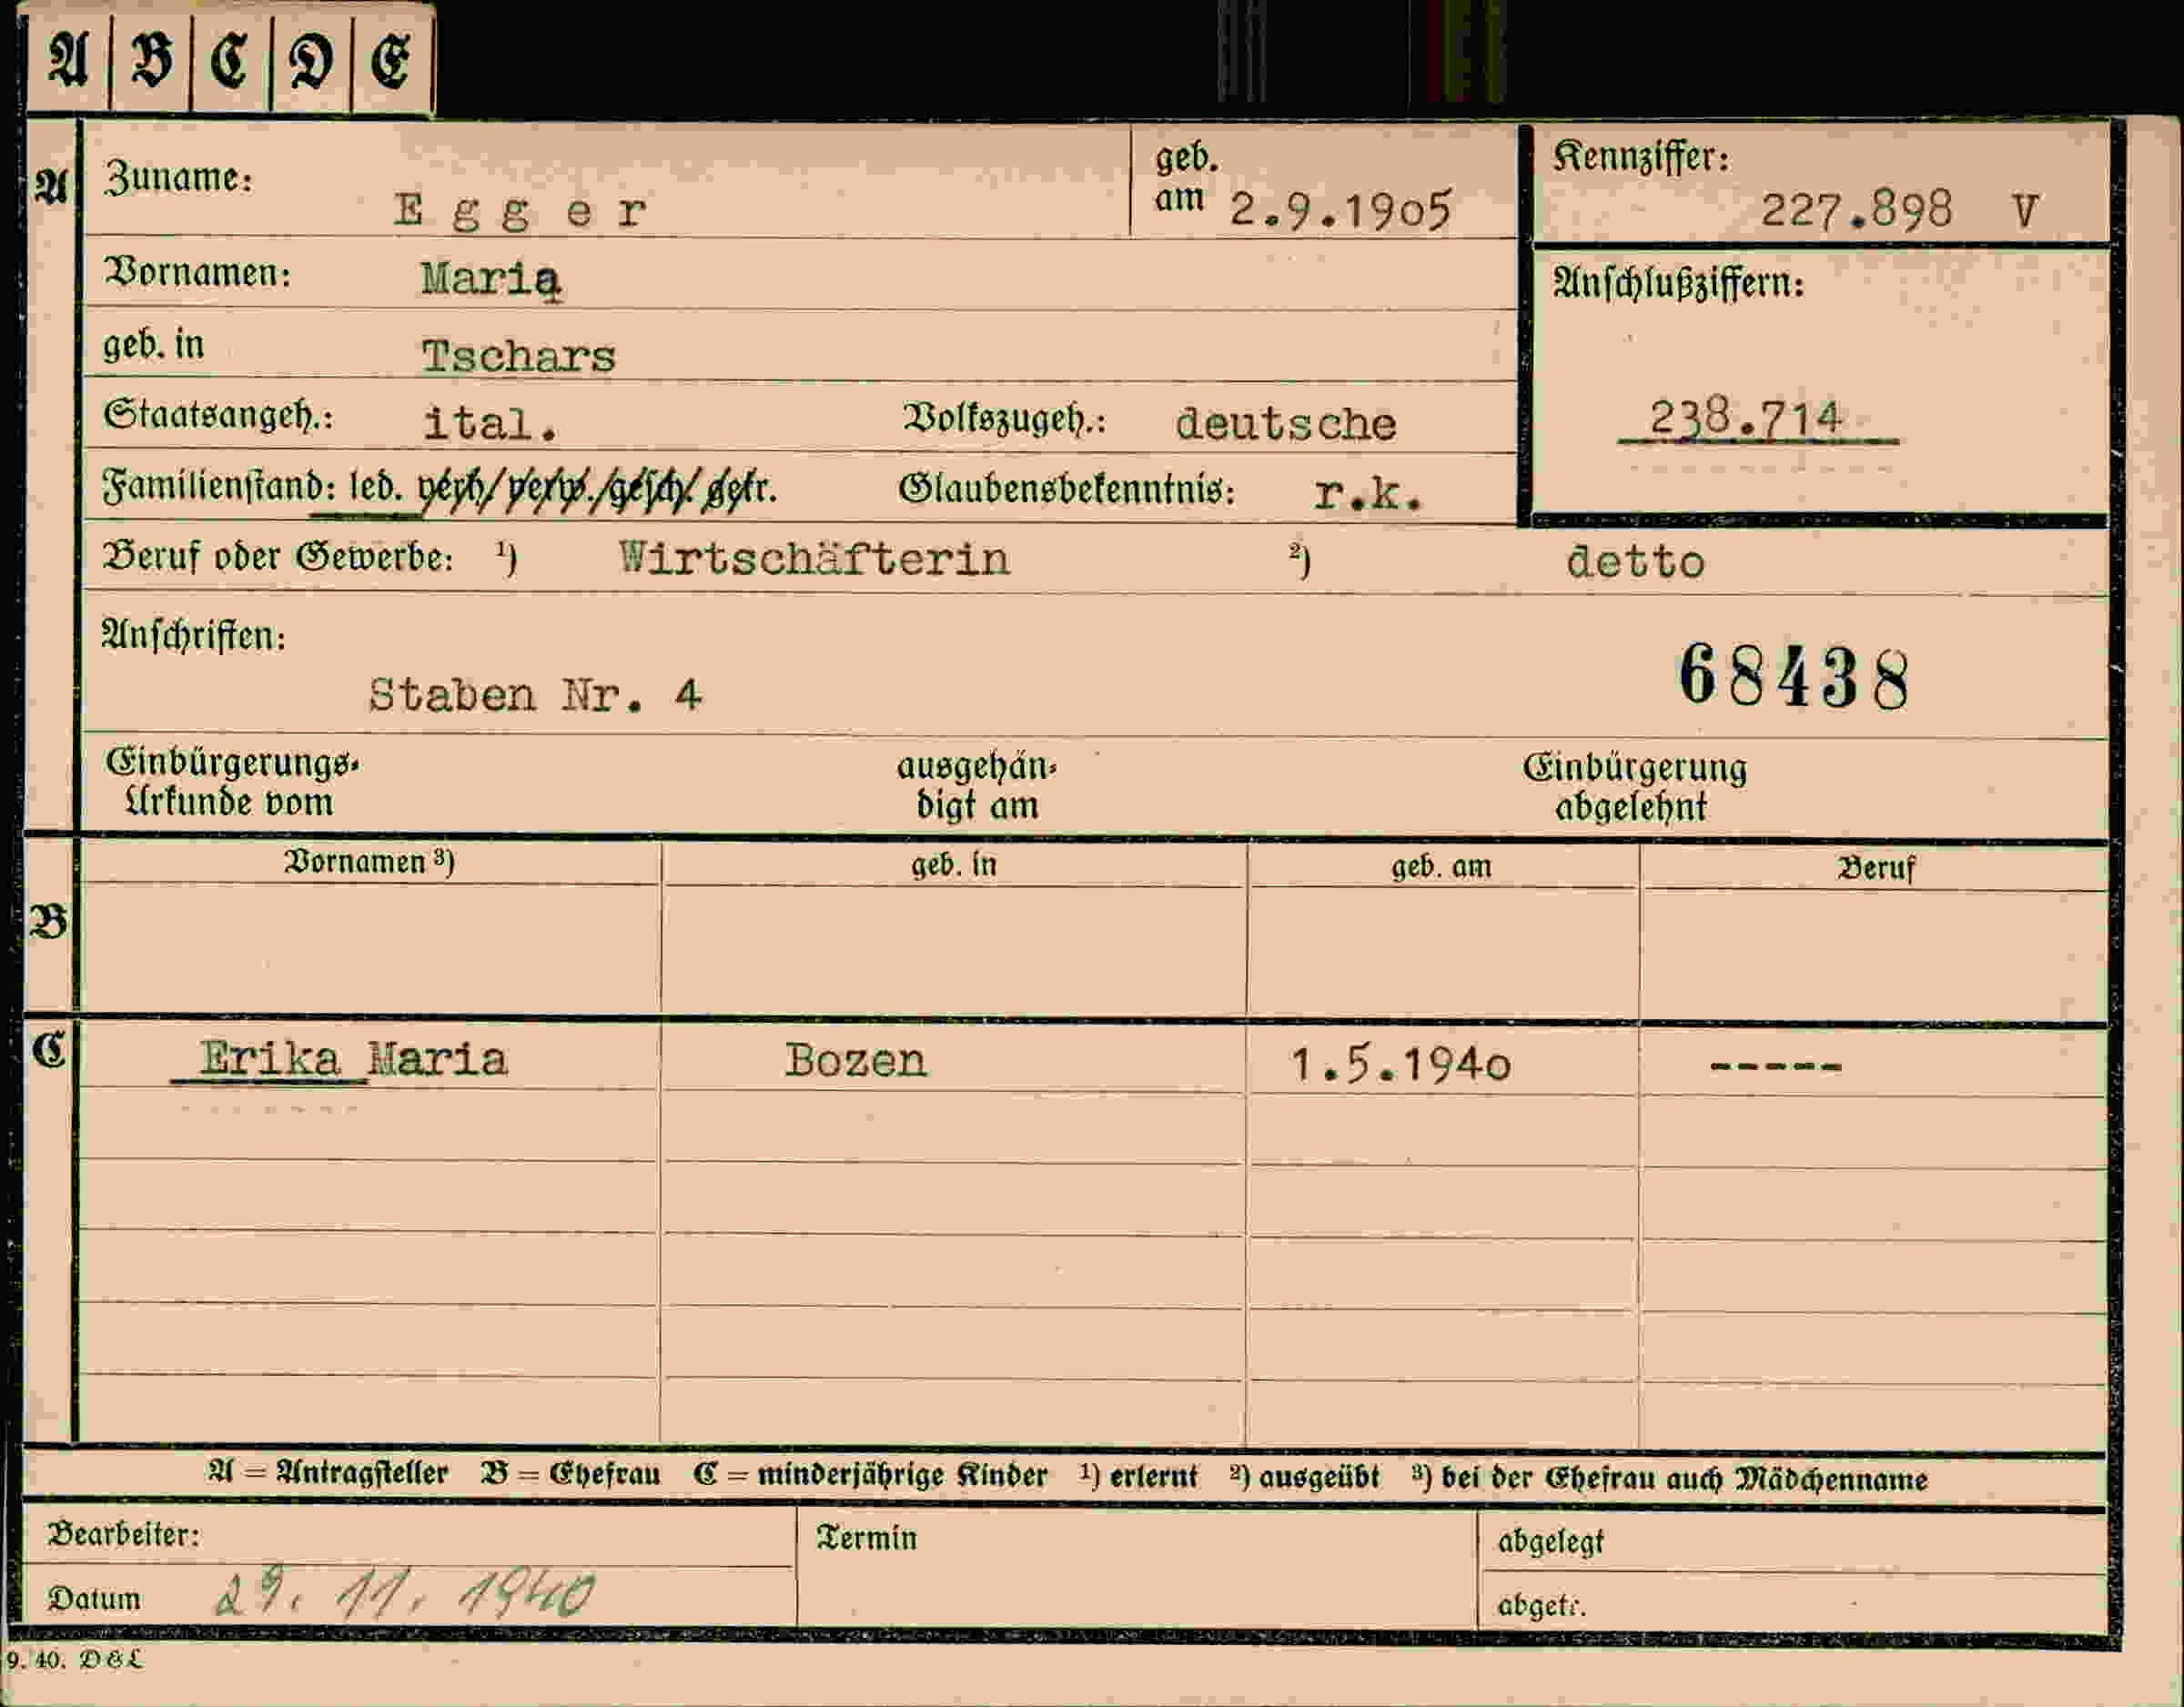 A B C D E
A Zuname: Egger geb. am 2.9.1905 Kennziffer: 227.898 V
Vornamen: Maria Anschlußziffern:
geb. in Tschars
Staatsangeh.: ital. Volkszugeh.: deutsche 238.714
Familienstand: led. verh/verw./gesch/getr. Glaubensbekenntnis: r.k.
Beruf oder Gewerbe: 1) Wirtschäfterin 2) detto
Anschriften: 68438
Staben Nr. 4
Einbürgerungs- ausgehän- Einbürgerung
Urkunde vom digt am abgelehnt
Vornamen 3) geb. in geb. am Beruf
B
C Erika Maria Bozen 1.5.1940 -----
A = Antragsteller B = Ehefrau C = minderjährige Kinder 1) erlernt 2) ausgeübt 3) bei der Ehefrau auch Mädchenname
Bearbeiter: Termin abgelegt
Datum 29. 11. 1940 abgetr.
9. 40. D & L